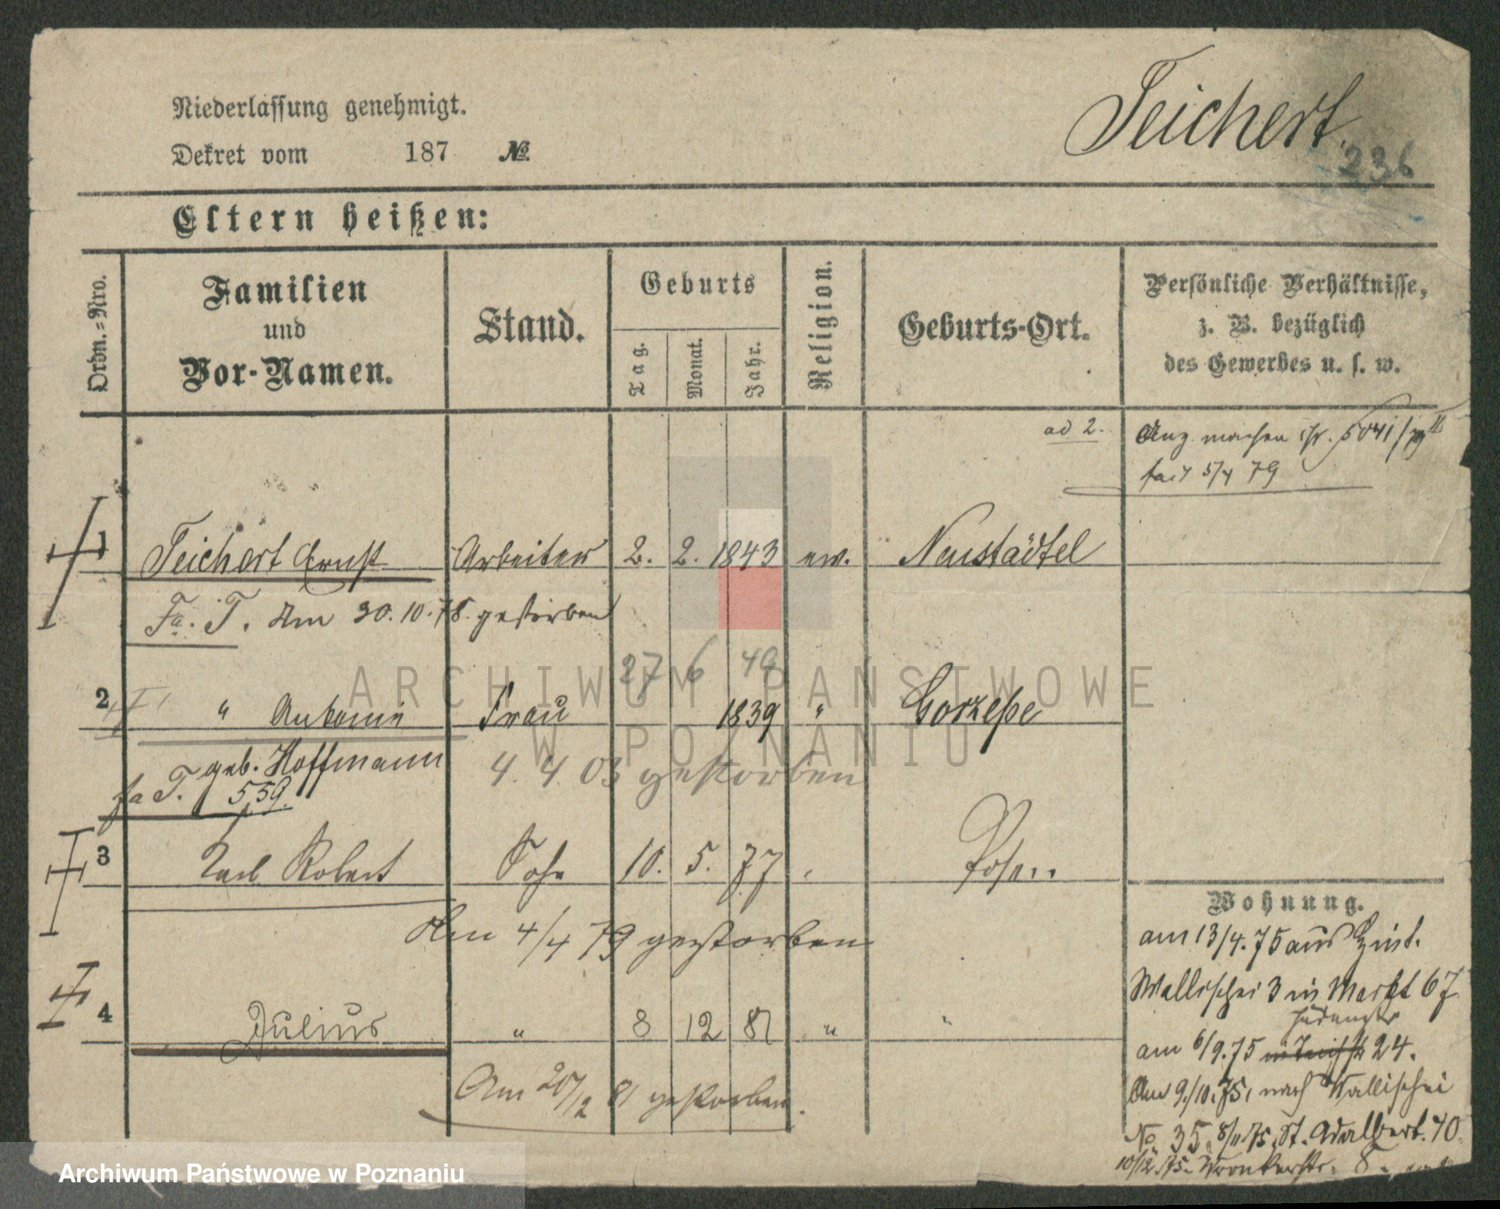 Niederlassung genehmigt.
Dekret vom 187 No
Teichert.
236
Eltern heißen:
Ordn.=Nro.
Familien
und
Vor-Namen.
Stand.
Geburts
Tag.
Monat.
Jahr.
Religion.
Geburts-Ort.
Persönliche Verhältnisse,
z. B. bezüglich
des Gewerbes u. s. w.
ad 2.
5041/79
5/4 79
1 Teichert Ernst Arbeiter 2. 2. 1843 ev. Neustädtel
Fa. T. Am 30.10.78. gestorben
27 6 49
2 " Antonie Frau 1839 " Gorzepe
geb. Hoffmann
4. 4 03 gestorben
fa T. 559.
3 Karl Robert Sohn 10. 5. 77 Posen
Am 4/4 79 gestorben
4 Julius " 8 12 81 " "
Am 20/2 81 gestorben.
Wohnung.
am 13/4. 75 aus
Wallischei 3 in Markt 67
am 6/9. 75 24.
Am 9./10. 75, nach Wallischei
No 35. 8/11 75. St. Adalbert. 40.
10/12. 75. Wronkerstr. 8.
ARCHIWUM PAŃSTWOWE
W POZNANIU
Archiwum Państwowe w Poznaniu